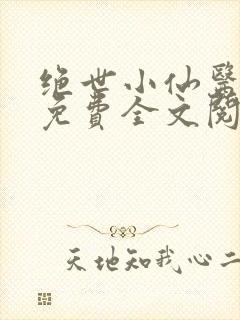 绝世小仙醫
免費全文閱
天地知我心二